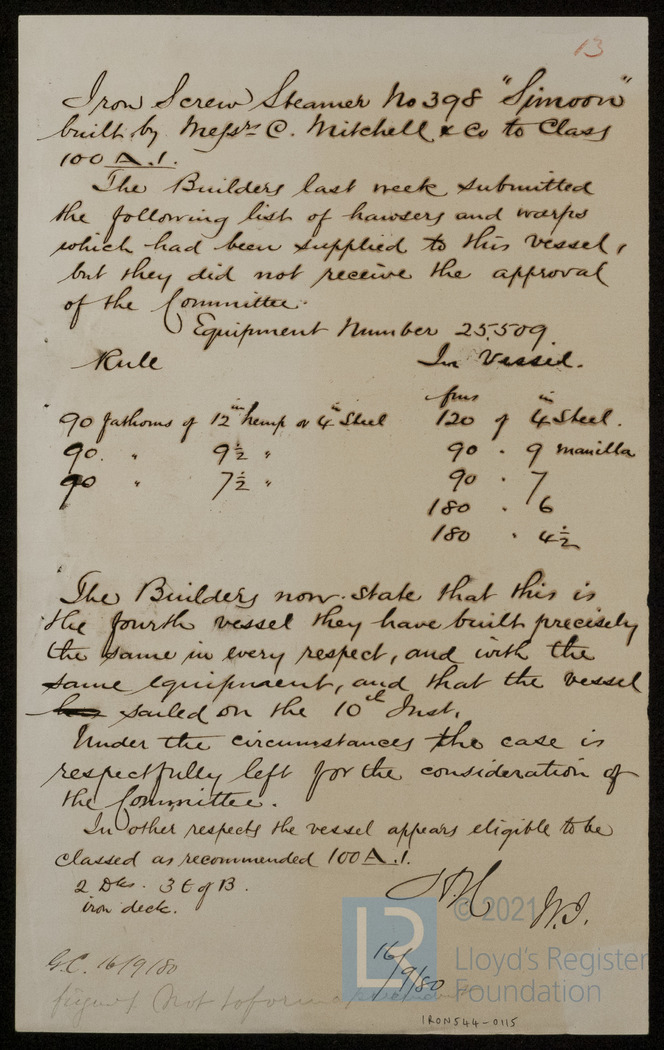 13
Iron Screw Steamer No 398 "Simoon"
built by Messrs C. Mitchell & Co to Class
100 A.1.
The Builders last week submitted
the following list of hawsers and warps
which had been supplied to this vessel,
but they did not receive the approval
of the Committee.
Equipment Number 25.509
Rule In Vessel.
fms in
90 fathoms of 12 in hemp or 4 in Steel 120 of 4 Steel.
90 " 9½ " 90 " 9 manilla
90 " 7½ " 90 " 7
180 " 6
180 " 4½
The Builders now state that this is
the fourth vessel they have built precisely
the same in every respect, and with the
same equipment, and that the vessel
sailed on the 10th Inst.
Under the circumstances the case is
respectfully left for the consideration of
the Committee.
In other respects the vessel appears eligible to be
classed as recommended 100 A.1.
2 Dks. 3 t of B.
iron deck.
W.I.
© 2021
LR
Lloyd's Register
Foundation
16/9/80
G.C. 16/9/80
Not to form a
IRON544-0115